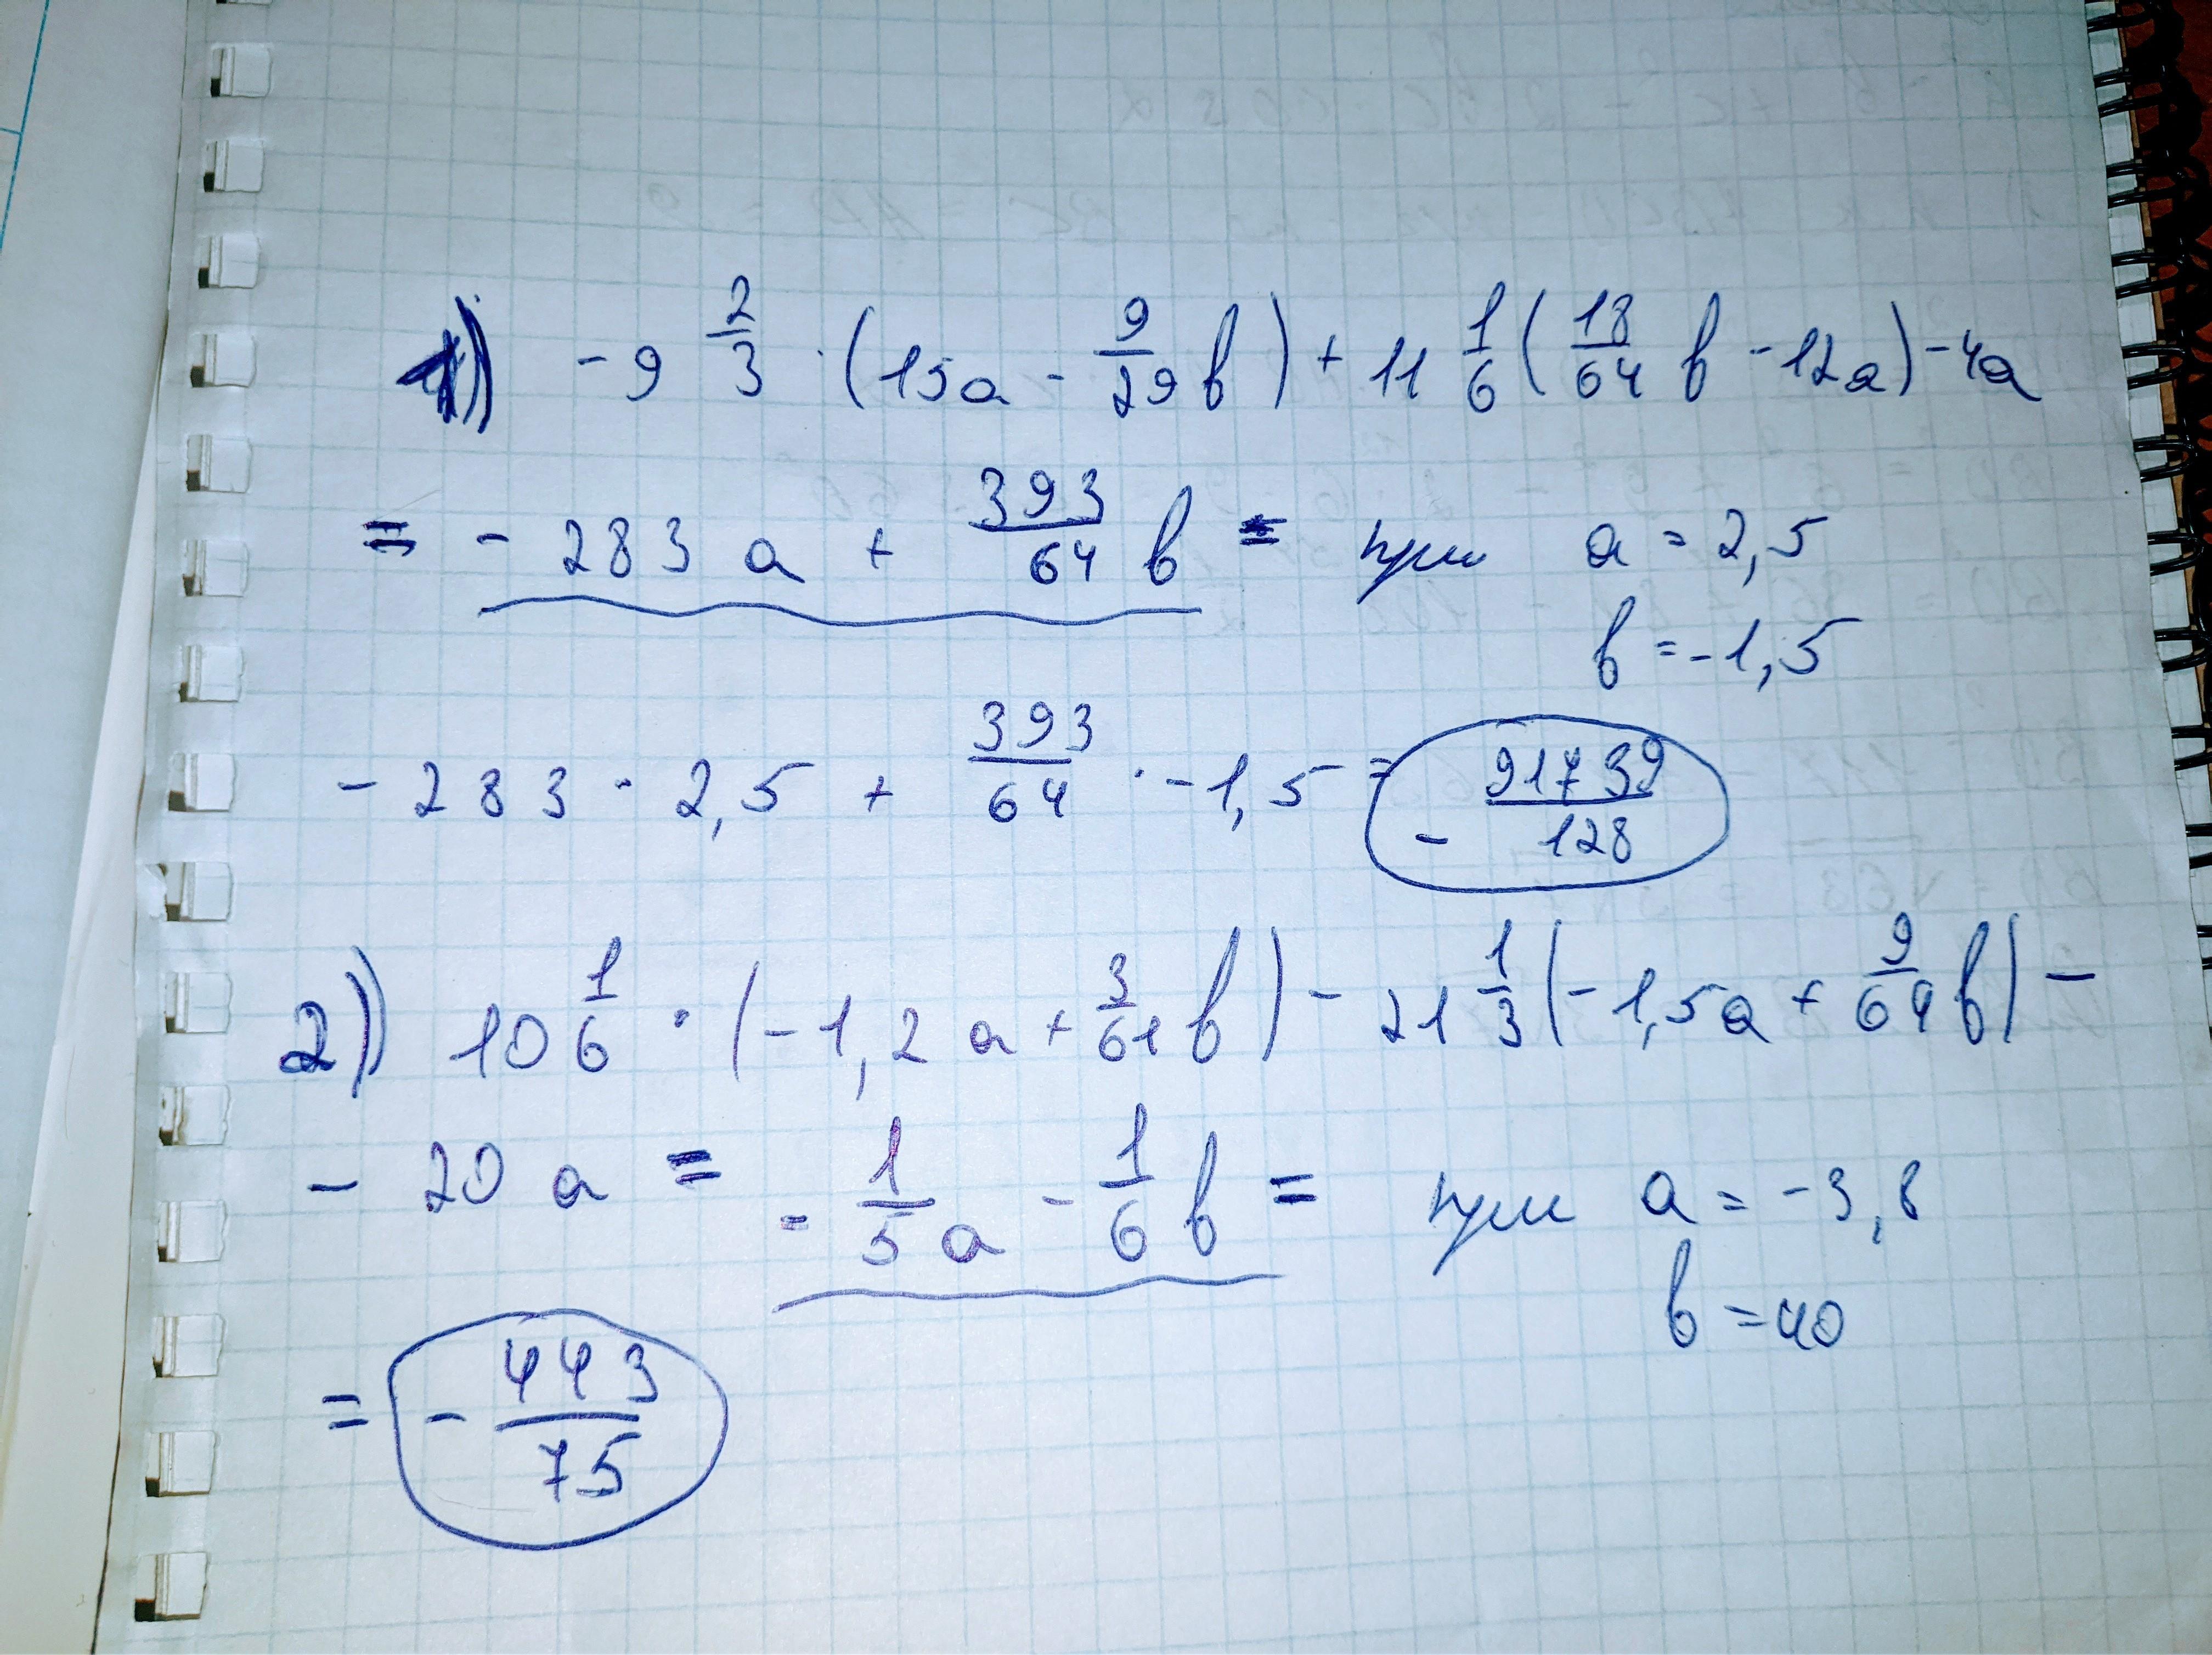 1) -9 2/3 · (15a - 9/29 b) + 11 1/6 (18/64 b - 12a) - 4a
= - 283 a + 393/64 b = при a = 2,5
b = -1,5
- 283 · 2,5 + 393/64 · -1,5 = - 91739/128
2) 10 1/6 · (-1,2 a + 3/61 b) - 21 1/3 (-1,5a + 9/64 b) -
- 20 a = - 1/5 a - 1/6 b = при a = -3,8
b = 40
= - 443/75